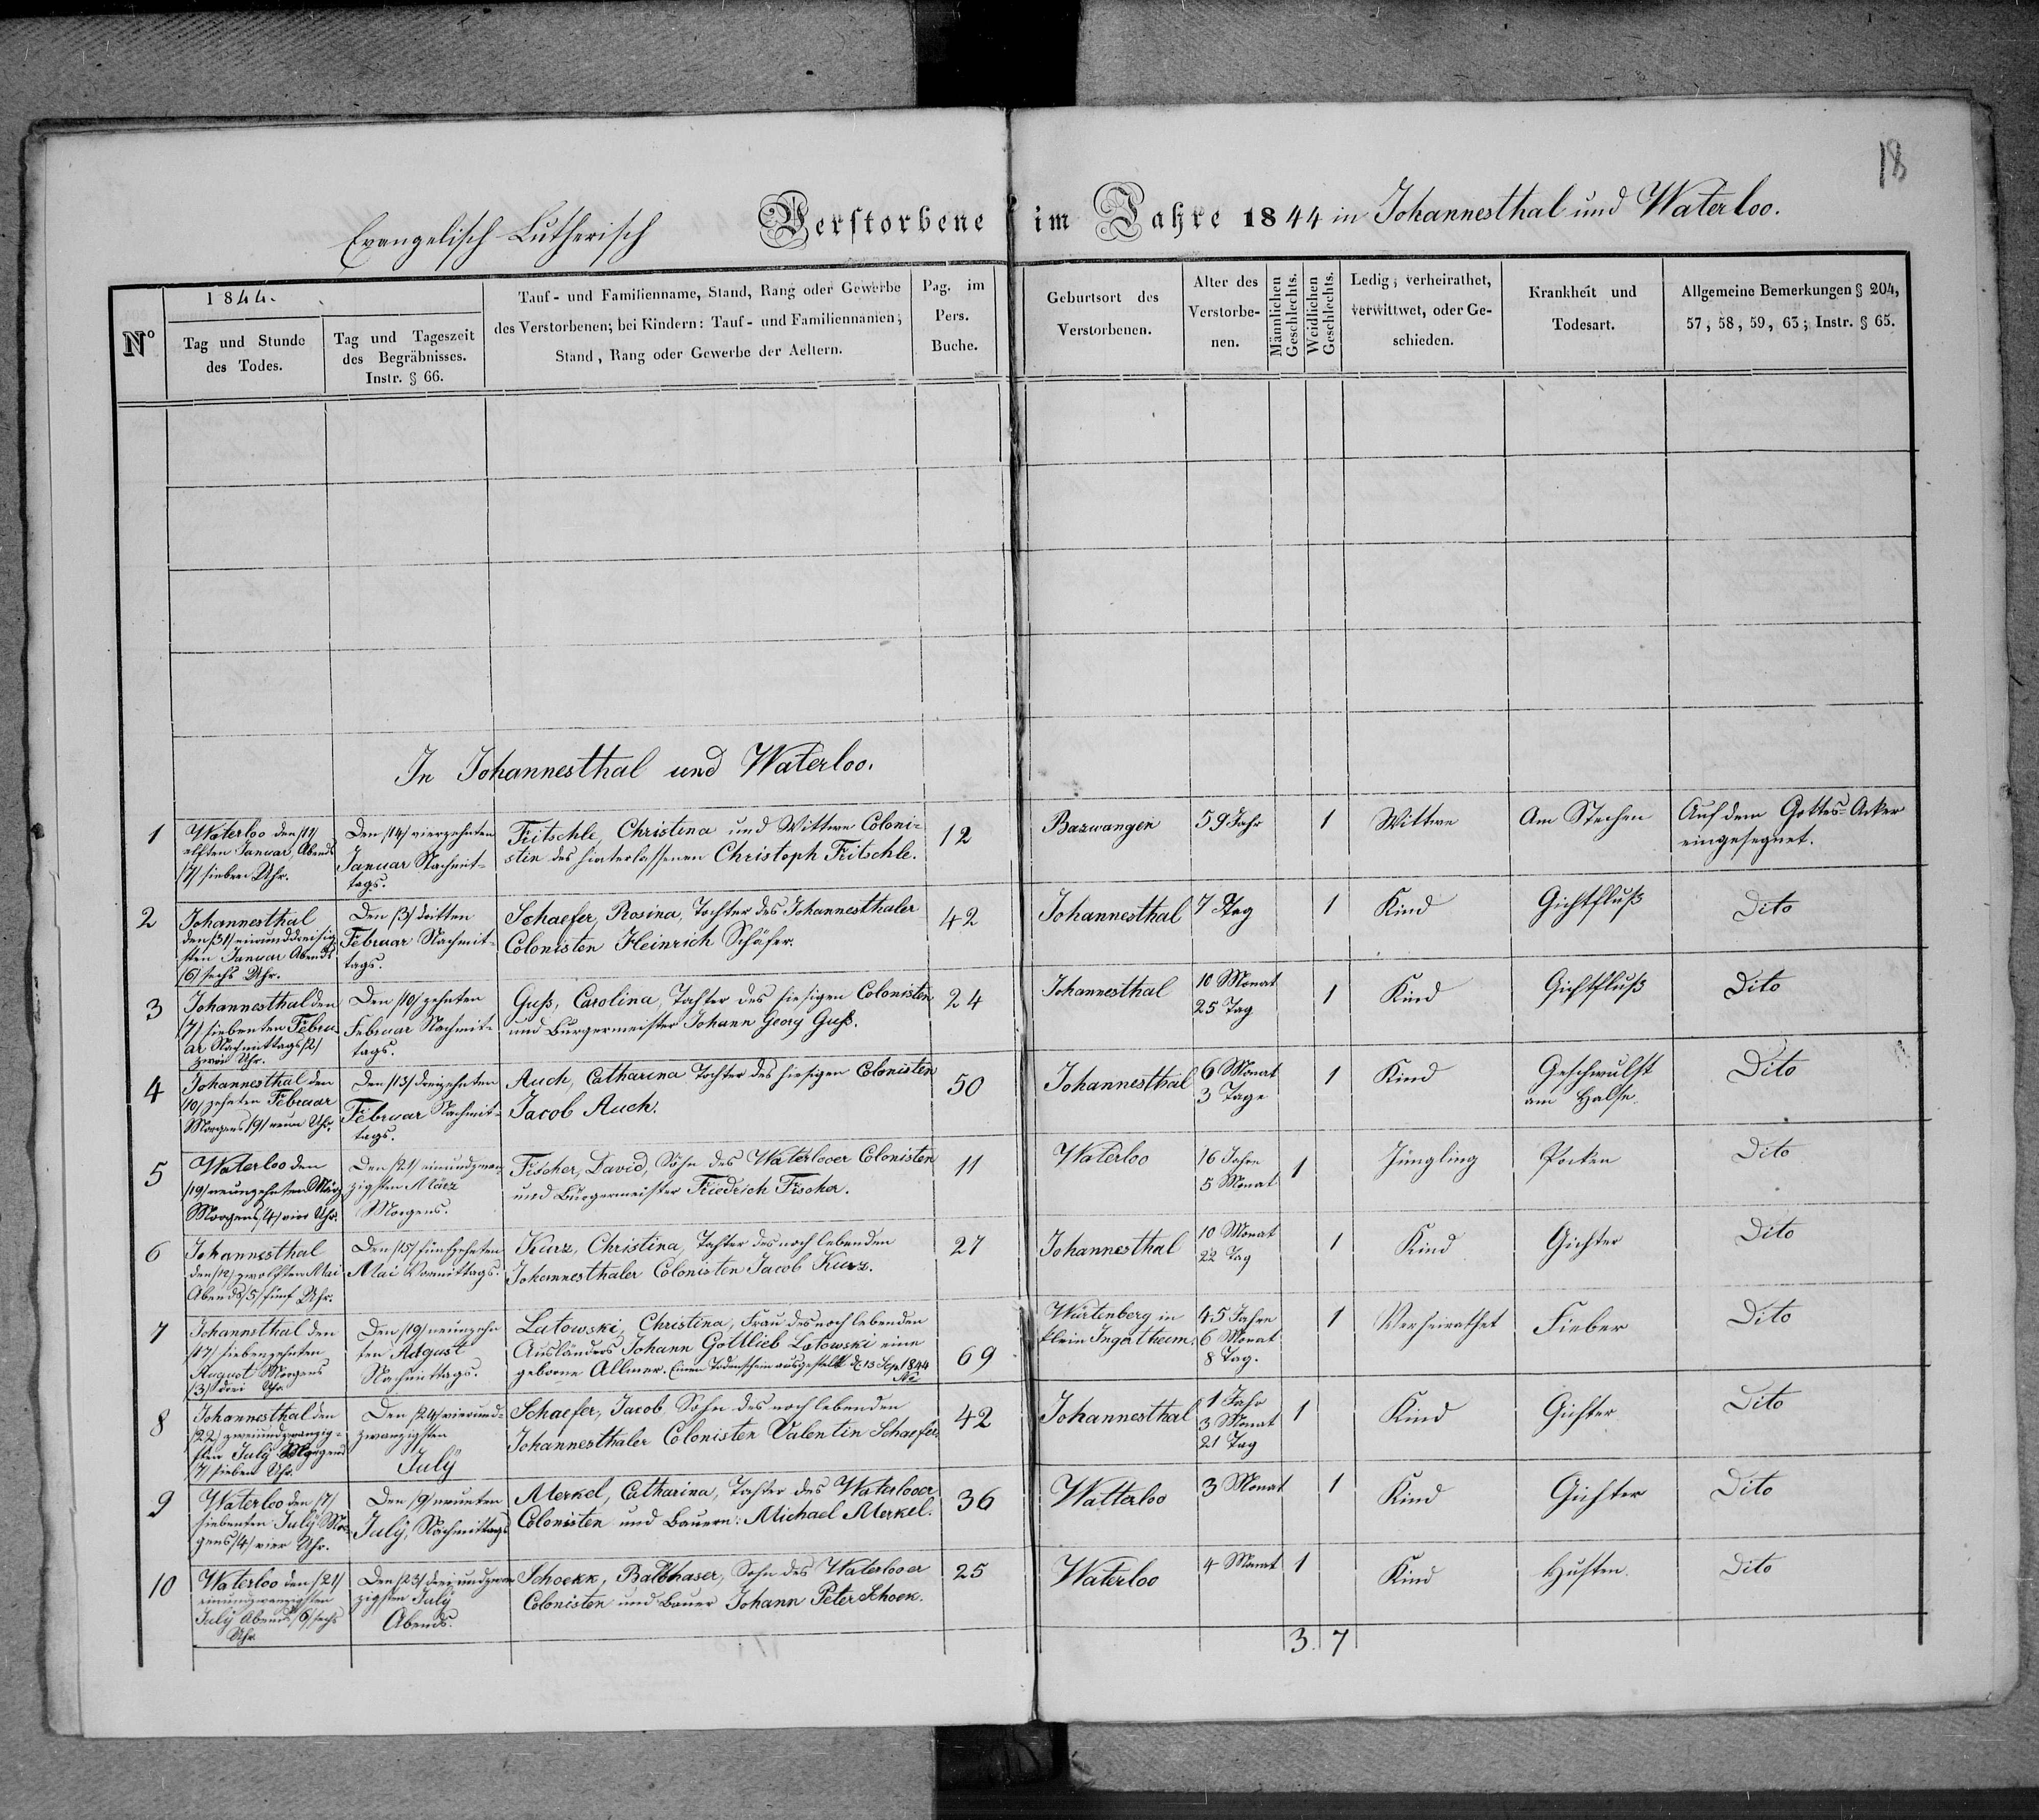 18
Evangelisch Lutherisch Verstorbene im Jahre 1844 in Johannesthal und Waterloo.
N°
1844.
Tag und Stunde
des Todes.
Tag und Tageszeit
des Begräbnisses.
Instr. § 66.
Tauf- und Familienname, Stand, Rang oder Gewerbe
des Verstorbenen; bei Kindern: Tauf- und Familiennamen;
Stand, Rang oder Gewerbe der Aeltern.
Pag. im
Pers.
Buche.
Geburtsort des
Verstorbenen.
Alter des
Verstorbe-
nen.
Männlichen
Geschlechts.
Weidlichen
Geschlechts.
Ledig; verheirathet,
verwittwet, oder Ge-
schieden.
Krankheit und
Todesart.
Allgemeine Bemerkungen § 204,
57, 58, 59, 63; Instr. § 65.
In Johannesthal und Waterloo.
1
Waterloo den /11/
elften Januar, Abends
/7/ sieben Uhr.
Den /14/ vierzehnten
Januar Nachmit-
tags.
Fritschle, Christina und Wittwe Coloni-
stin des hinterlassenen Christoph Fritschle.
12
Bazwangen
59 Jahr
1
Wittwe
Am Stechen
Auf dem Gottes-Acker
eingesegnet.
2
Johannesthal
den /31/ einunddreisig-
sten Januar Abends
/6/ sechs Uhr.
Den /3/ dritten
Februar Nachmit-
tags.
Schaefer, Rosina, Tochter des Johannesthaler
Colonisten Heinrich Schäfer.
42
Johannesthal
7 Tag
1
Kind
Gichtfluß
Dito
3
Johannesthal den
/7/ siebenten Febru-
ar Nachmittags /2/
zwei Uhr.
Den /10/ zehnten
Februar Nachmit-
tags.
Guß, Carolina, Tochter des hiesigen Colonisten
und Burgermeister Johann Georg Guß.
24
Johannesthal
10 Monat
25 Tag
1
Kind
Gichtfluß
Dito
4
Johannesthal den
/10/ zehnten Februar
Morgens /9/ neun Uhr.
Den /13/ dreizehnten
Februar Nachmit-
tags.
Auch, Catharina Tochter des hiesigen Colonisten
Jacob Auch.
50
Johannesthal
6 Monat
3 Tage
1
Kind
Geschwulst
am Halse.
Dito
5
Waterloo den
/19/ neunzehnten März
Morgens /4/ vier Uhr.
Den /21/ einundzwan-
zigsten März
Morgens.
Fischer, David, Sohn des Waterlooer Colonisten
und Burgermeister Friedrich Fischer.
11
Waterloo
16 Jahre
5 Monat
1
Jüngling
Pocken
Dito
6
Johannesthal
den /12/ zwölften Mai
Abends /5/ fünf Uhr.
Den /15/ fünfzehnten
Mai Vormittags.
Kurz, Christina, Tochter des noch lebenden
Johannesthaler Colonisten Jacob Kurz.
27
Johannesthal
10 Monat
22 Tag
1
Kind
Gichter
Dito
7
Johannsthal den
/17/ siebenzehnten
August Morgens
/3/ drei Uhr
Den /19/ neunzehn
ten August
Nachmittags.
Latowski, Christina, Frau des noch lebenden
Ausländers Johann Gottlieb Latowski eine
geborne Allmer. Einen Todenschein ausgestellt d. 13 Sep. 1844
69
Würtenberg in
klein Ingertheim.
45 Jahre
6 Monat
8 Tag.
1
Verheirathet
Fieber
Dito
8
Johannesthal den
/22/ zweiundzwanzig-
sten July Morgens
/7/ sieben Uhr.
Den /24/ vierund-
zwanzigsten
July
Schaefer, Jacob, Sohn des noch lebenden
Johannesthaler Colonisten Valentin Schaefer.
42
Johannesthal
1 Jahr
3 Monat
21 Tag
1
Kind
Gichter
Dito
9
Waterloo den /7/
siebenten July Mor-
gens /4/ vier Uhr.
Den /9/ neunten
July, Nachmittags
Merkel, Catharina, Tochter des Waterlooer
Colonisten und Bauern: Michael Merkel.
36
Watterloo
3 Monat
1
Kind
Gichter
Dito
10
Waterloo den /21/
einundzwanzigsten
July Abends /6/ sechs
Uhr.
Den /23/ dreiundzwan
zigsten July
Abends.
Schockk, Balthaser, Sohn des Waterlooer
Colonisten und Bauer Johann Peter Schock.
25
Waterloo
4 Monat
1
Kind
Husten.
Dito
3 7